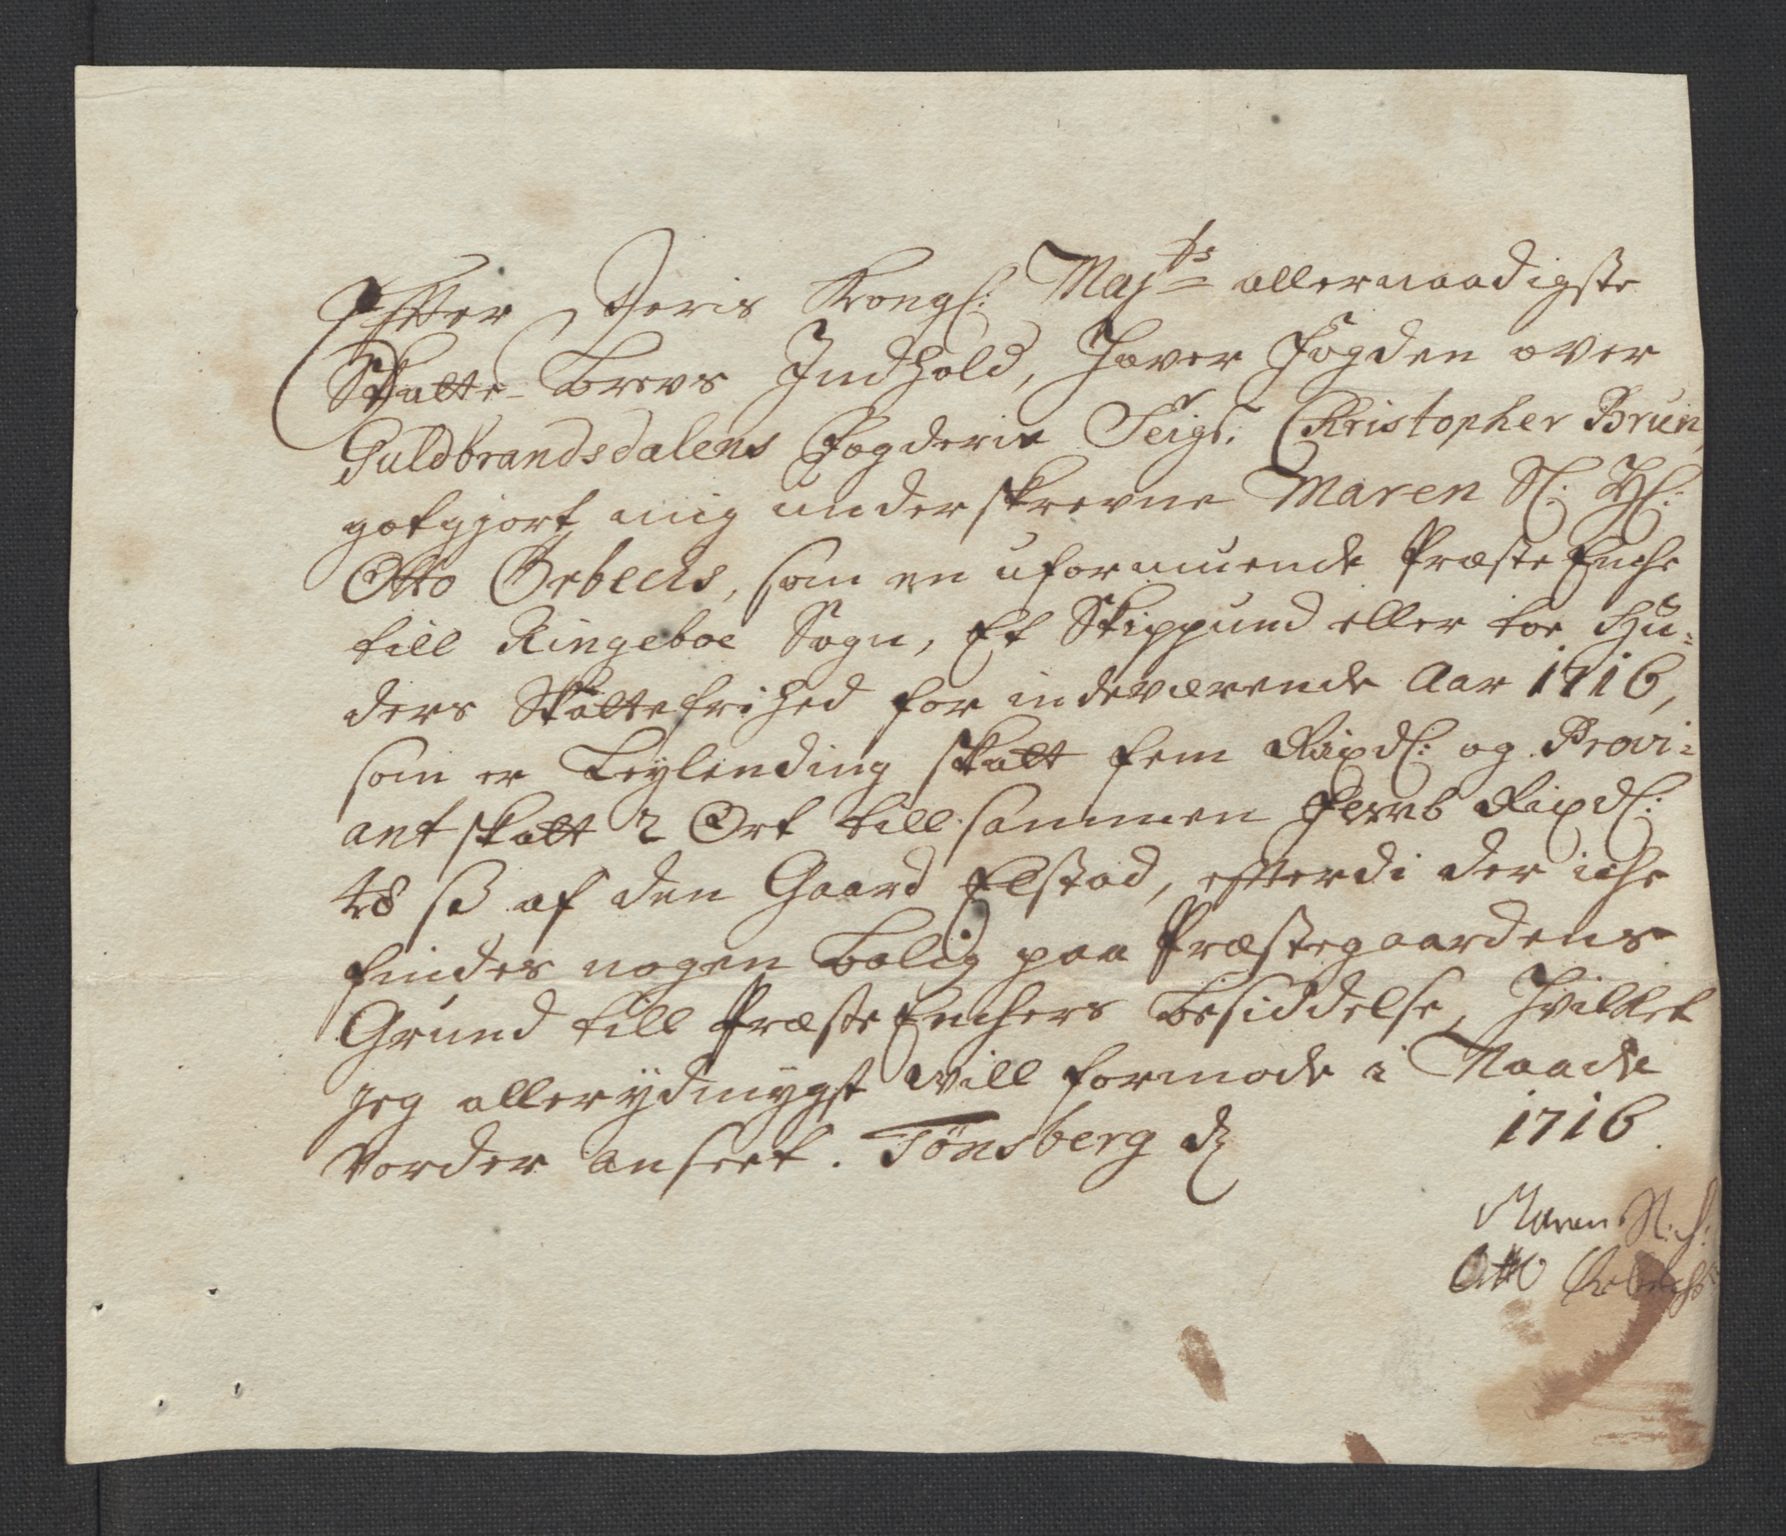 Effter Deris Kongl: Maj:ts allernaadigste
Skatte-Brevs Indhold, Haver Fogden over
Guldbrandsdalens Fogderie Seigr: Christopher Brun,
gotgjort mig underskrevne Maren Sl: Hl:
Otto Örbechs, som en uformuende Præste Enche
till Ringeboe Sogn, Et Skippund eller toe Hu-
ders Skattefrihed for indeværende Aar 1716,
som er Leylending skatt fem Rixdl: og Provi-
ant skatt 2 Ort till sammen Rixdl:
48 ß af den Gaard Elstad, efterdi der iche
findes nogen Bolig paa Præstegaardens
Grund till Præste Enchers Besiddelse, Hvilket
jeg allerydmygst vill formode i Naade
Vorder anseet. Tönsberg d 1716.
Maren Sl. H:
Otto Örbechs